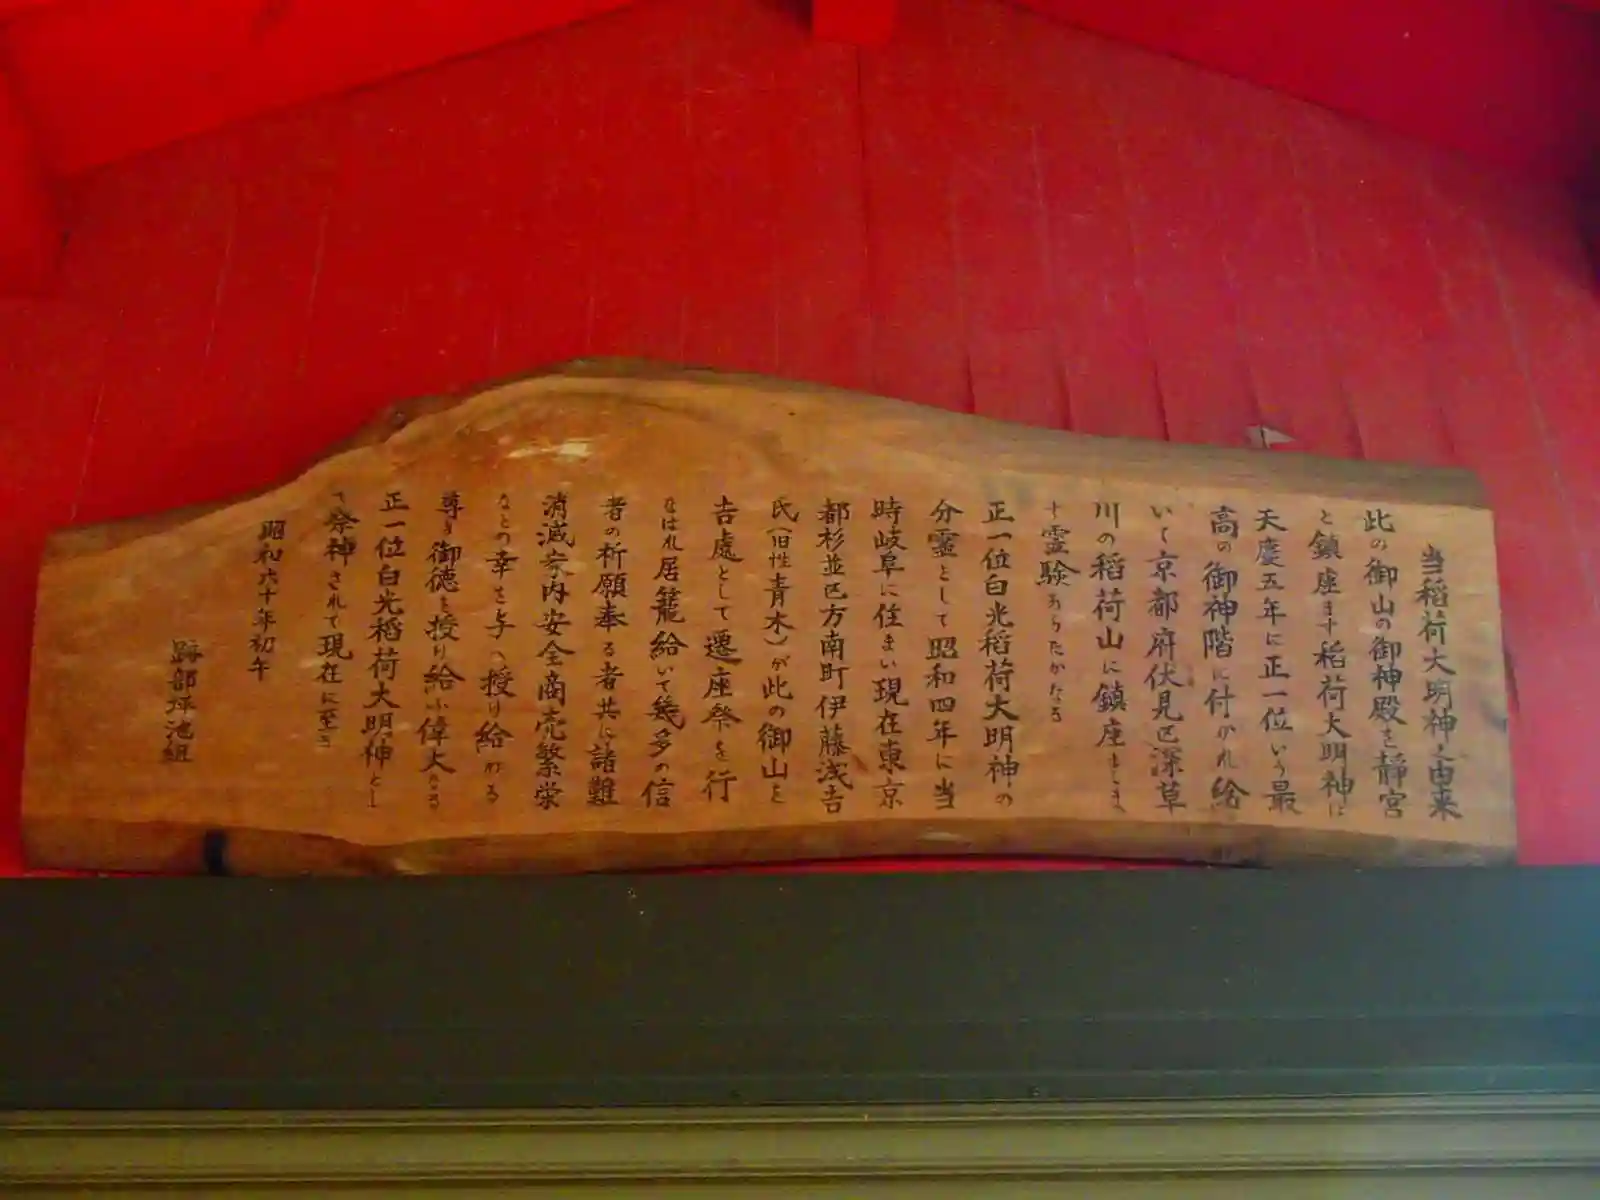 当稲荷大明神之由来
此の御山の御神殿を静宮
と鎮座ます稲荷大明神は
天慶五年に正一位いう最
高の御神階に付かれ給
いて京都府伏見区深草
川の稲荷山に鎮座まします
十霊験あらたかなる
正一位白光稲荷大明神の
分霊として昭和四年に当
時岐阜に住まい現在東京
都杉並区方南町伊藤浅吉
氏(旧性青木)が此の御山を
吉處として遷座祭を行
なはれ居籠給いて幾多の信
者の祈願奉る者共に諸難
消滅家内安全商売繁栄
なとの幸を与へ授け給わる
尊き御徳を授り給ふ偉大なる
正一位白光稲荷大明神とし
て祭神されて現在に至る
昭和六十年初午
跡部坪池組